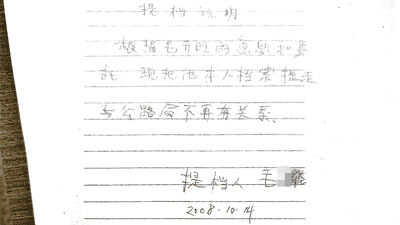 提档证明
根据毛开旺同意思和要
求 现把他本人档案提走
与公路局不再有关系.
提档人 毛
2008.10.14